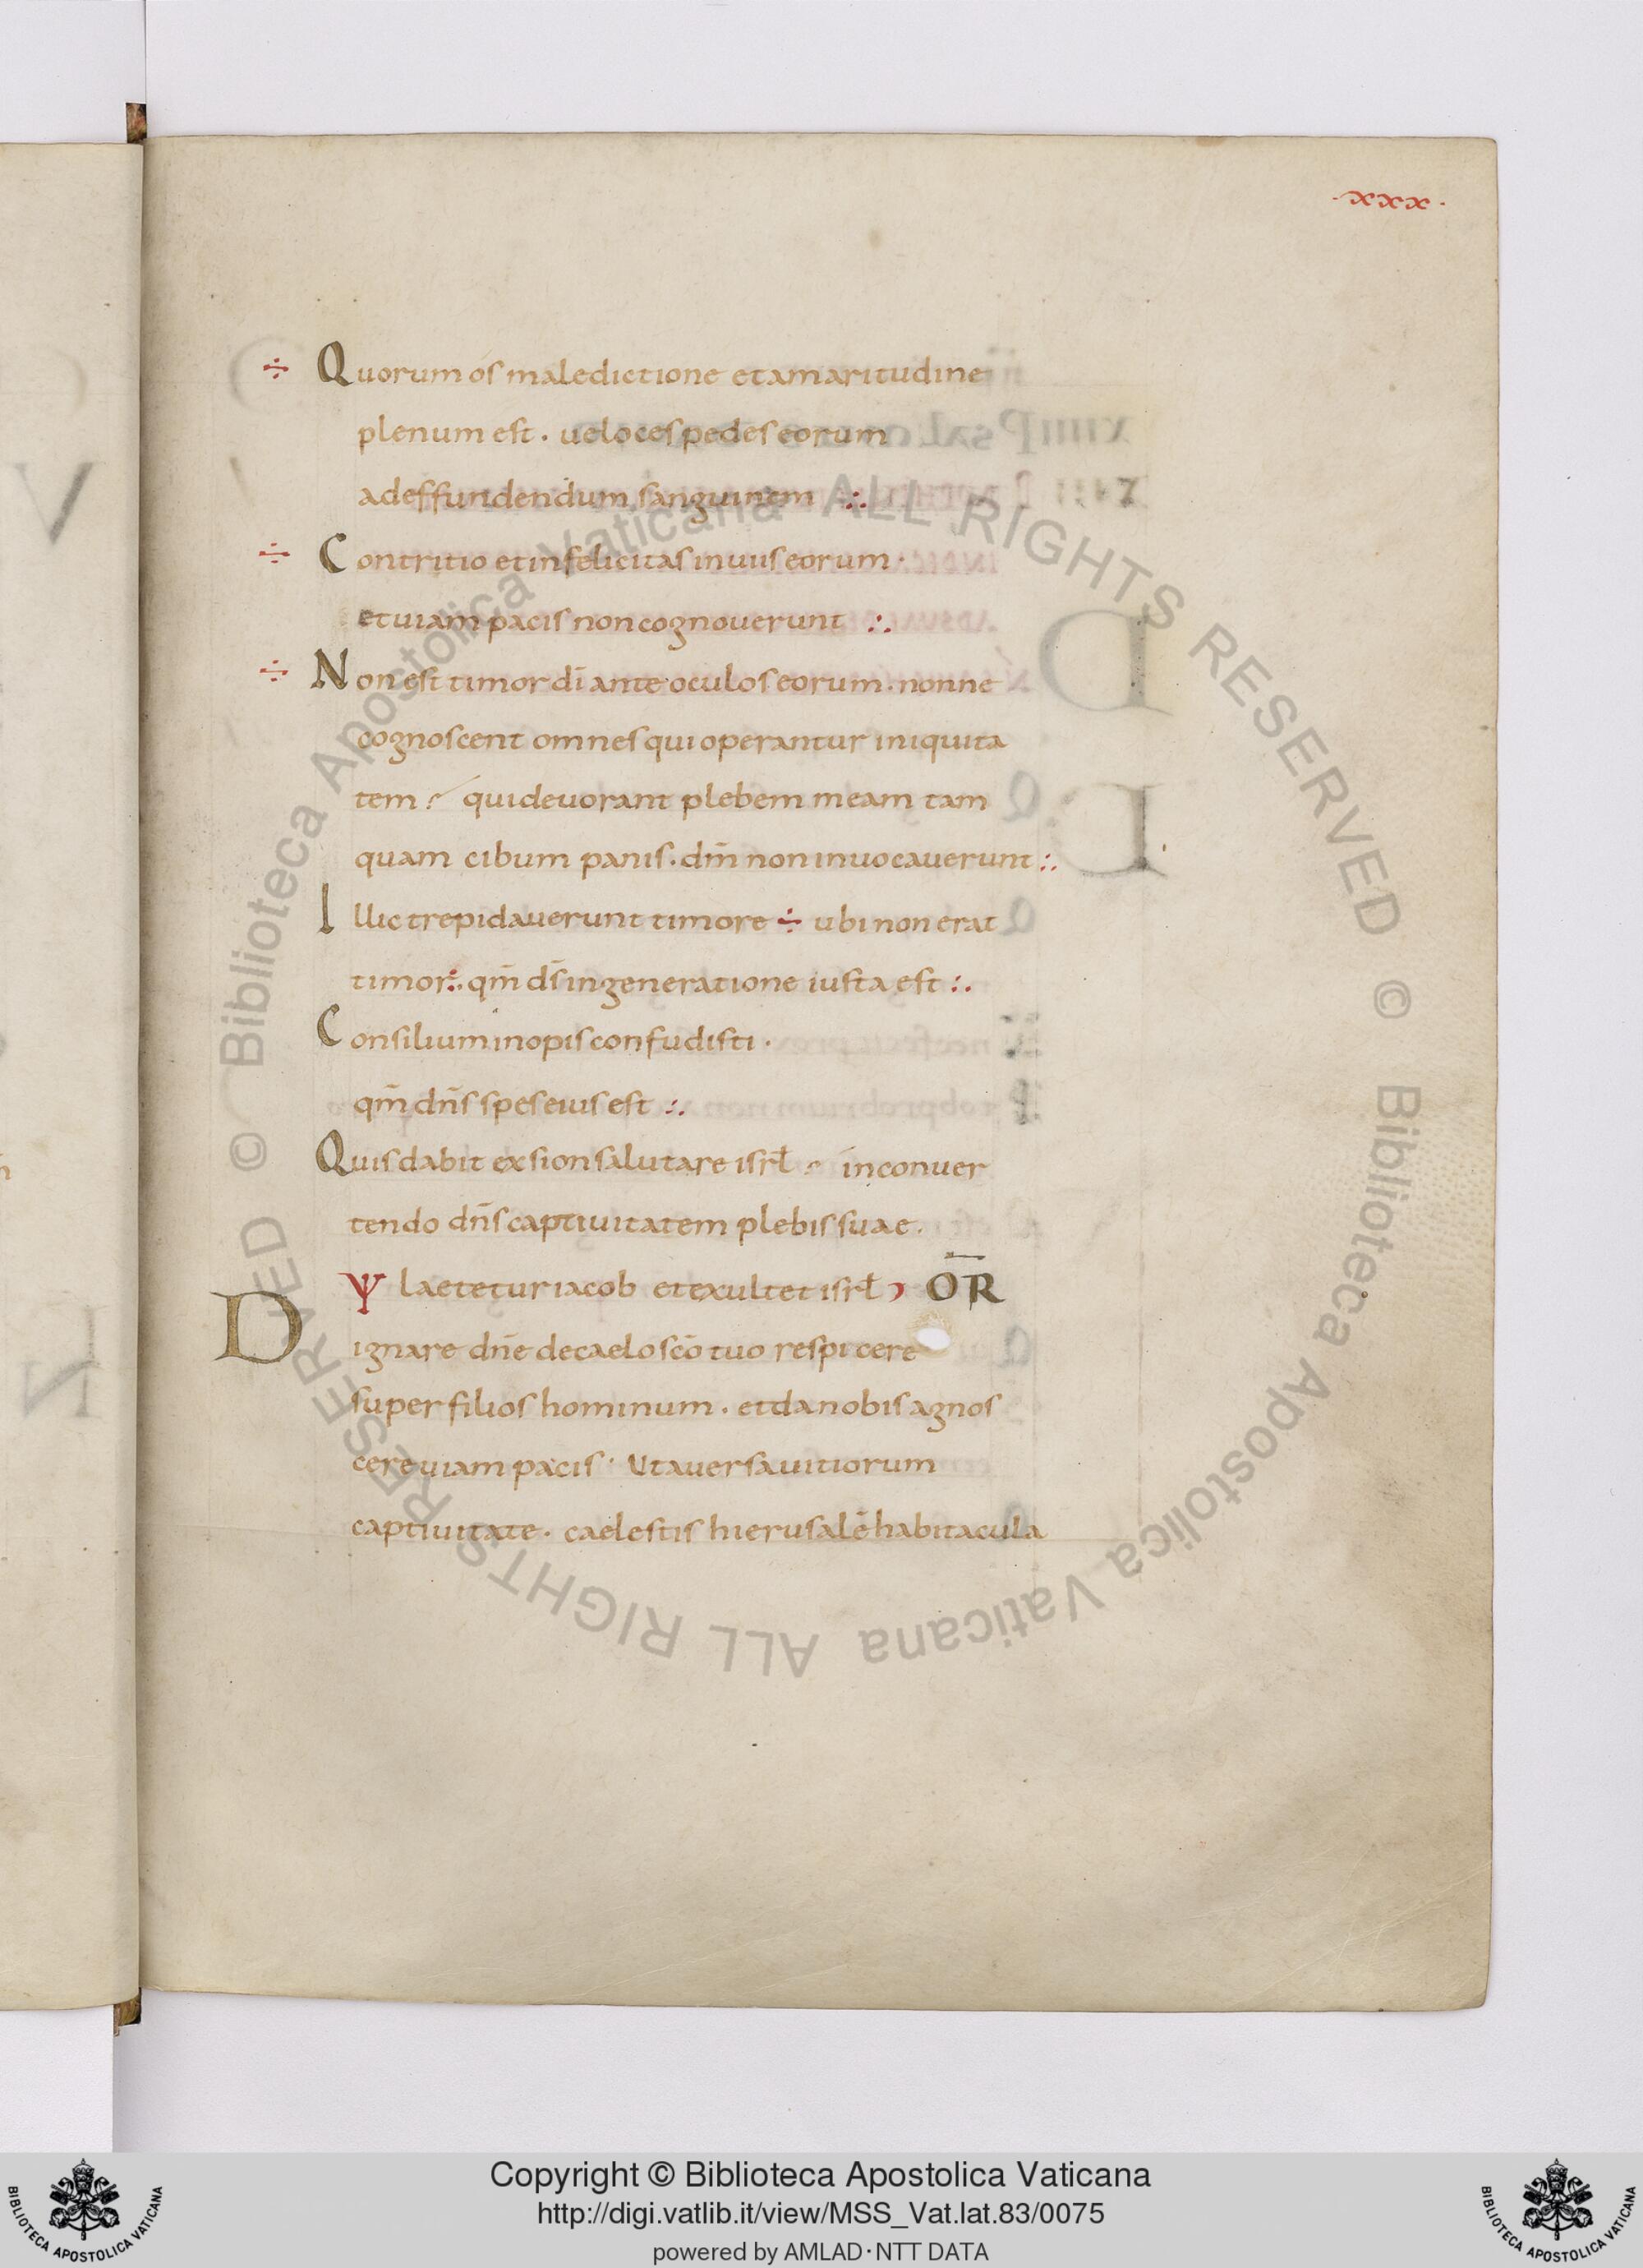 ·xxx·
÷ Quorum os maledictione et amaritudine
plenum est · ueloces pedes eorum
ad effundendum sanguinem :.
÷ Contritio et infelicitas in uiis eorum ·
et uiam pacis non cognouerunt :.
÷ Non est timor dī ante oculos eorum · nonne
cognoscent omnes qui operantur iniquita
tem : qui deuorant plebem meam tam
quam cibum panis · dm̄ non inuocauerunt :.
Illic trepidauerunt timore ÷ ubi non erat
timor :. qm̄ ds̄ in generatione iusta est :.
Consilium inopis confudisti ·
qm̄ dn̄s spes eius est :.
Quis dabit ex sion salutare isrł : in conuer
tendo dn̄s captiuitatem plebis suae ·
Ψ laetetur iacob et exultet isrł ŌR
Dignare dn̄e de caelo scō tuo respicere
super filios hominum · et da nobis agnos
cere uiam pacis · Ut auersa uitiorum
captiuitate · caelestis hierusalē habitacula
© Biblioteca Apostolica Vaticana ALL RIGHTS RESERVED © Biblioteca Apostolica Vaticana ALL RIGHTS RESERVED
BIBLIOTECA APOSTOLICA VATICANA
Copyright © Biblioteca Apostolica Vaticana
http://digi.vatlib.it/view/MSS_Vat.lat.83/0075
powered by AMLAD·NTT DATA
BIBLIOTECA APOSTOLICA VATICANA